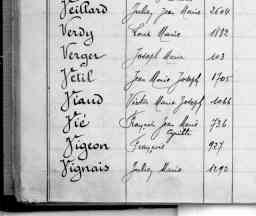 Veillard Julien Jean Marie 2604
Verdy Louis Marie 1882
Verger Joseph Marie 103
Vétil Jean Marie Joseph 1705
Viaud Victor Marie Joseph 1066
Vié François Jean Marie 736
Vigeon François 927
Vignais Julien Marie 1292